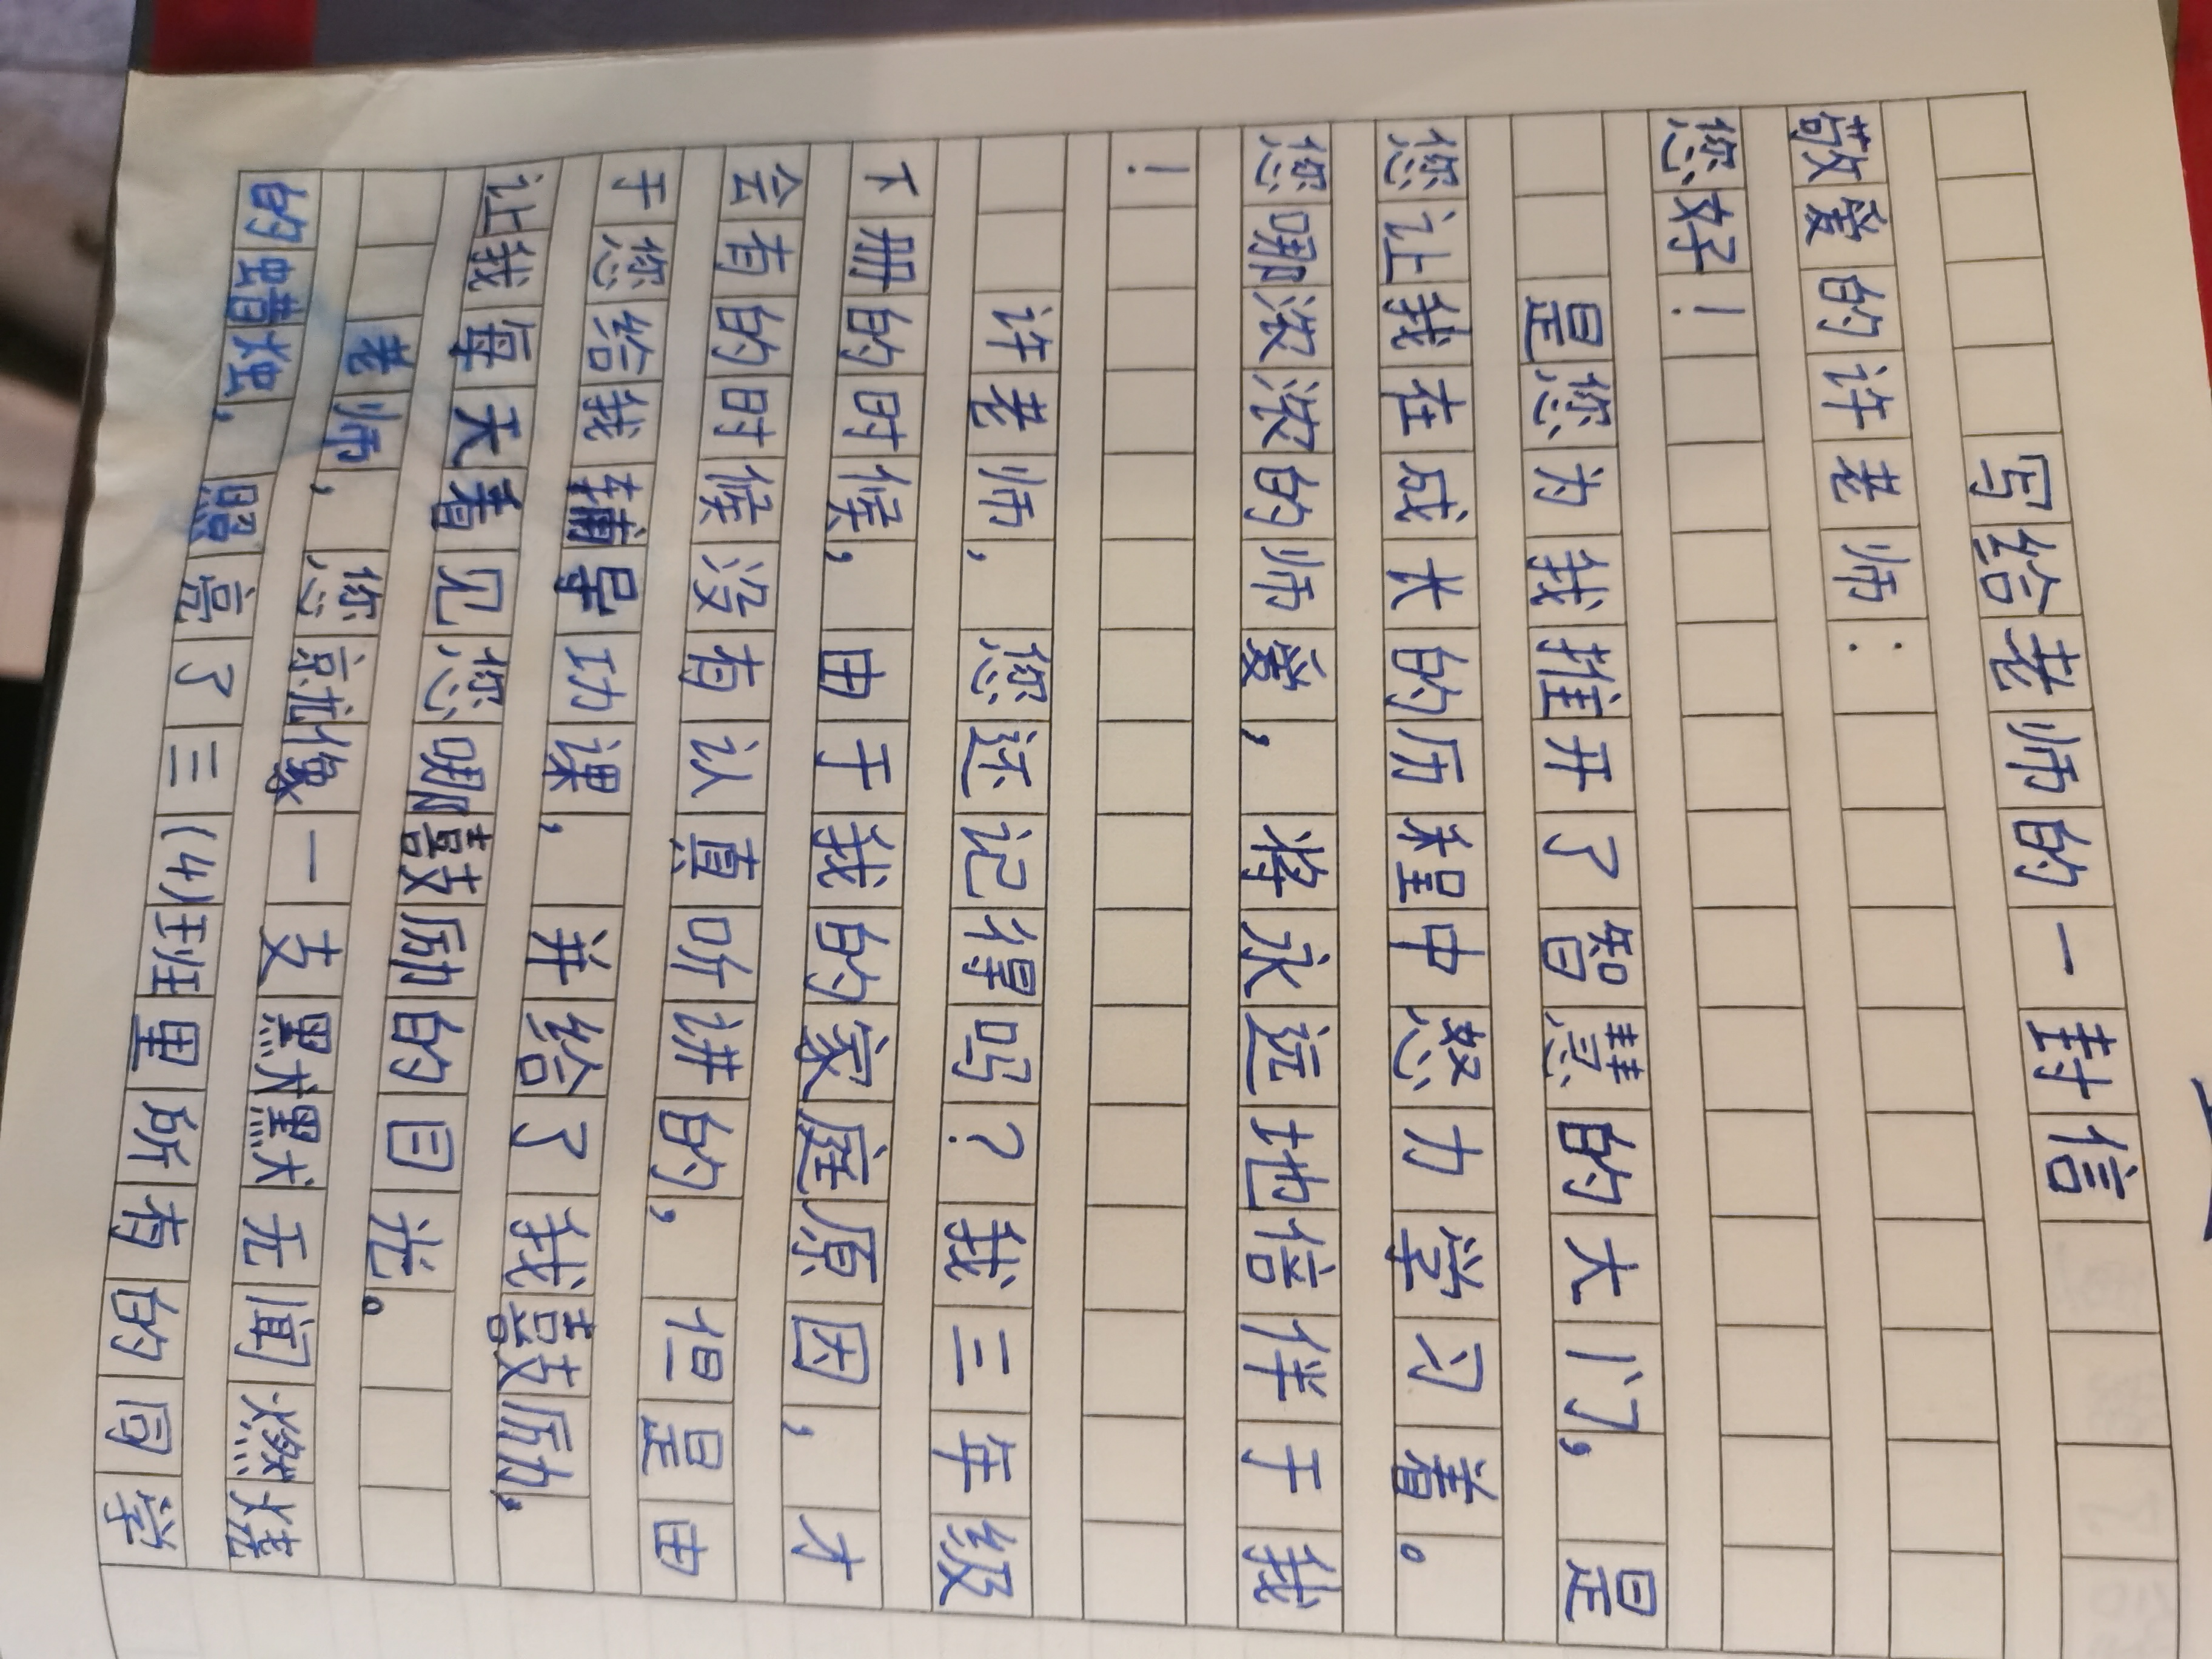 写给老师的一封信
敬爱的许老师：
您好！
是您为我推开了智慧的大门，是
您让我在成长的历程中怒力学习着。
您哪浓浓的师爱，将永远地倍伴于我
！
许老师，您还记得吗？我三年级
下册的时候，由于我的家庭原因，才
会有的时候没有认真听讲的，但是由
于您给我辅导功课，并给了我鼓励，
让我每天看见您哪鼓励的目光。
老师，您就像一支黑犬黑犬无闻燃烧
的蜡烛，照亮了三(4)班里所有的同学